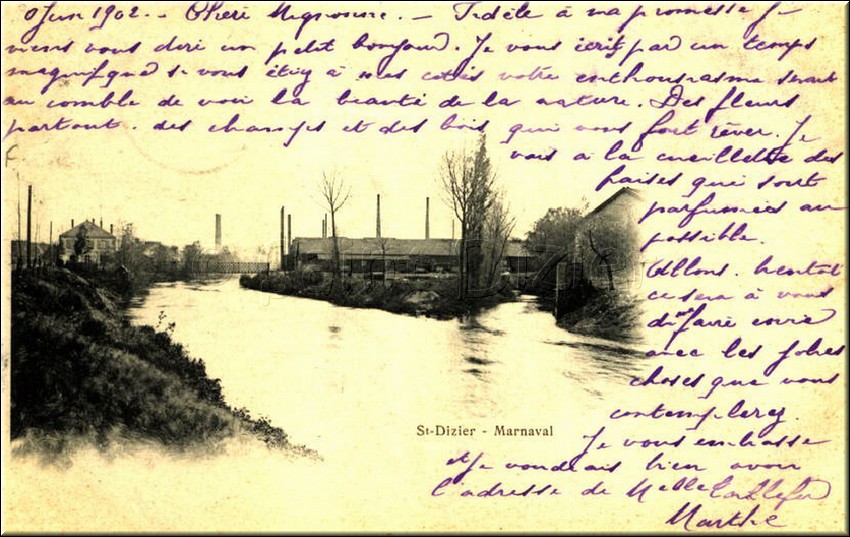 Juin 1902. - Chère Mignonne. - Fidèle à ma promesse je
viens vous dire un petit bonjour. Je vous écris par un temps
magnifique si vous étiez à mes cotés votre enthousiasme serait
au comble de voir la beauté de la nature. Des fleurs
partout. des champs et des bois qui vous font rêver. Je
vais à la cueillette des
fraises qui sont
parfumées au
possible.
Allons. bientot
ce sera à vous
de faire envie
avec les jolies
choses que vous
contemplerez.
St-Dizier - Marnaval
Je vous embrasse
et je voudrais bien avoir
l'adresse de Melle
Marthe